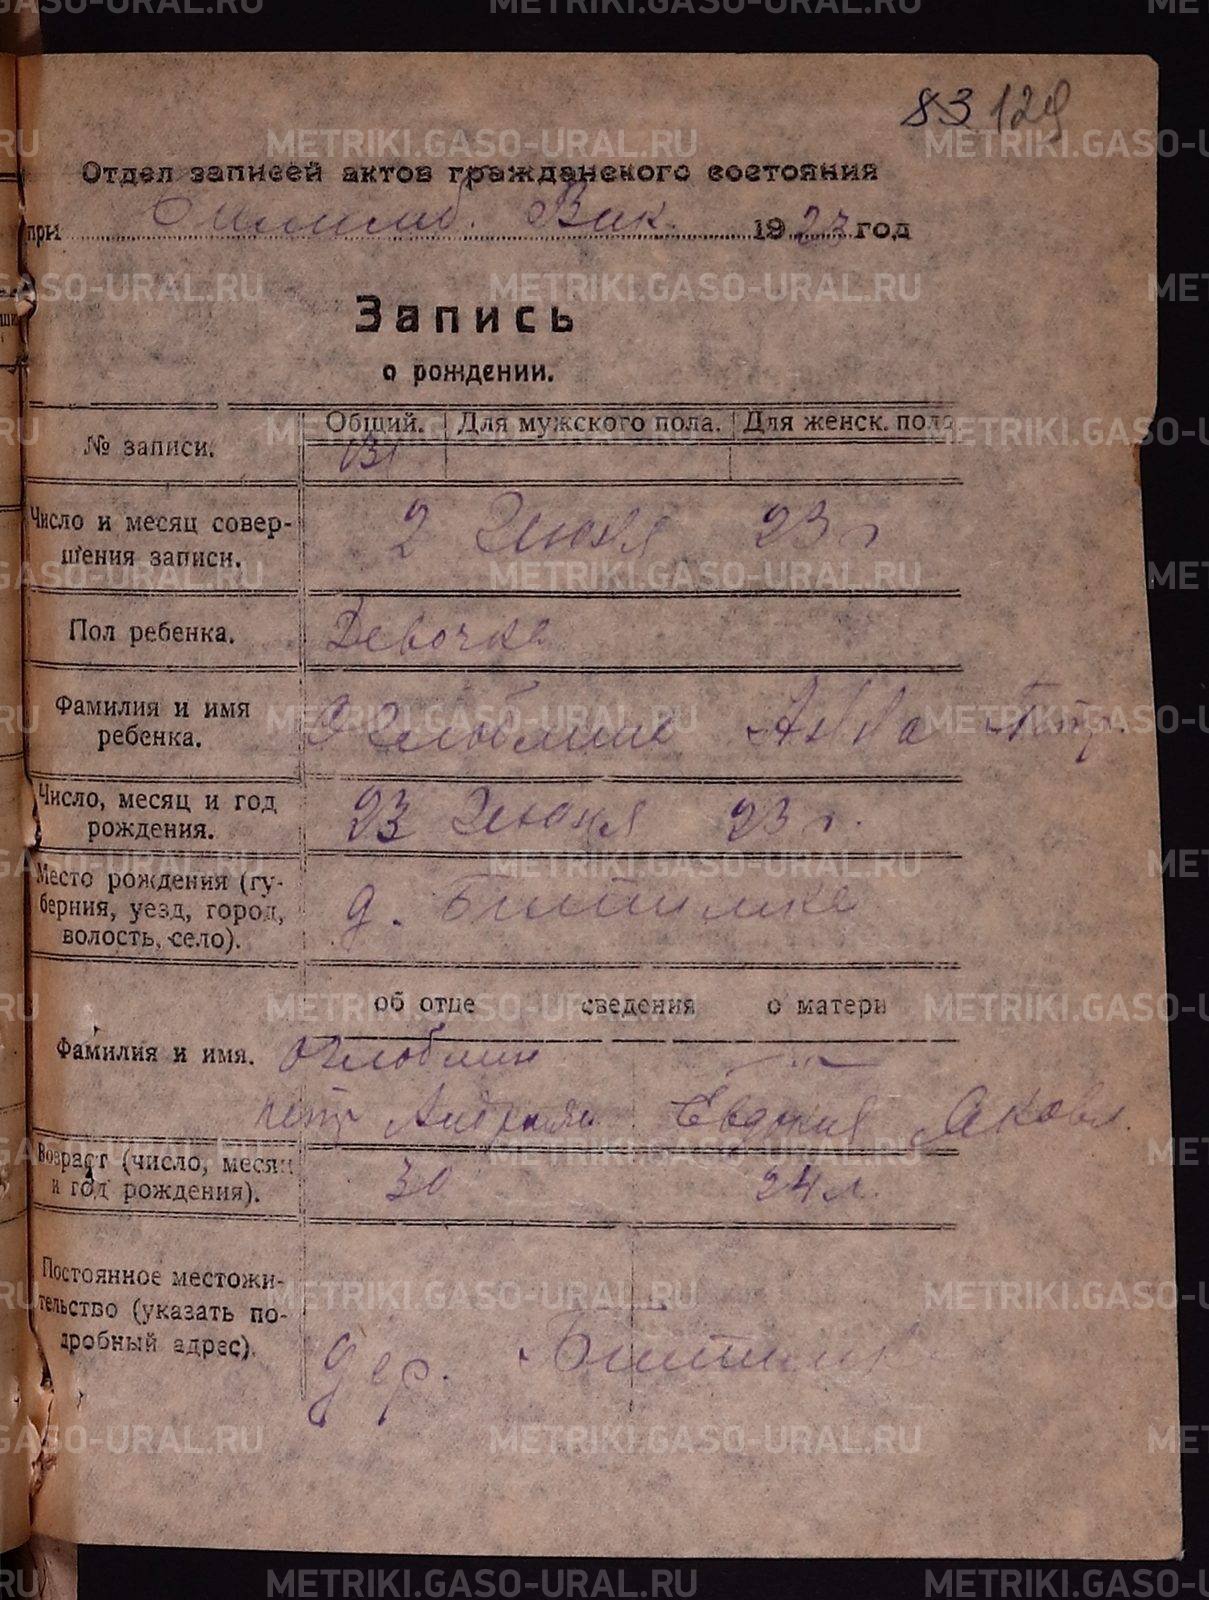 83 129
Отдел записей актов гражданского состояния
при Вик. 1923 год
Запись
о рождении.
№ записи.
Общий. Для мужского пола. Для женск. пола
131
Число и месяц совер-
шения записи.
2 Июля 23 г
Пол ребенка.
Девочка
Фамилия и имя
ребенка.
Оглоблина Анна Петр.
Число, месяц и год
рождения.
23 Июня 23 г.
Место рождения (гу-
берния, уезд, город,
волость, село).
д. Битимка
об отце сведения о матери
Фамилия и имя.
Оглоблин — " —
Петр Андреян Евдокия Яковл.
Возраст (число, месяц
и год рождения).
30 24 л.
Постоянное местожи-
тельство (указать по-
дробный адрес).
дер. Битимк
METRIKI.GASO-URAL.RU